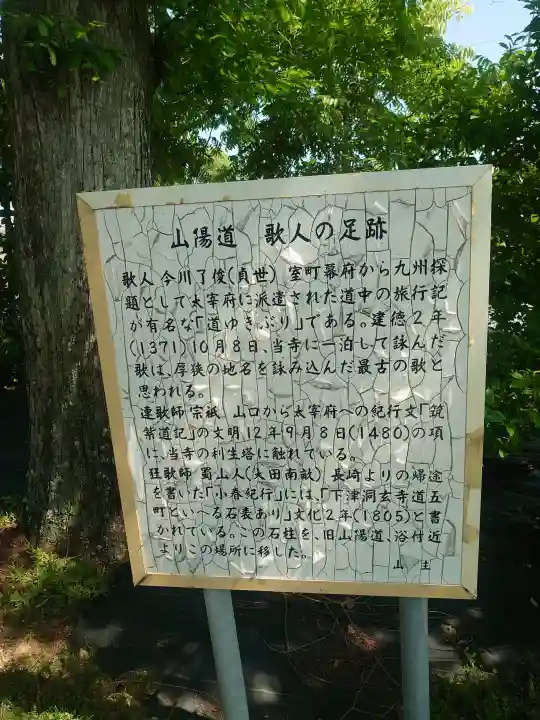 山陽道　歌人の足跡
歌人 今川了俊(貞世) 室町幕府から九州探
題として太宰府に派遣された道中の旅行記
が有名な「道ゆきぶり」である。建徳2年
(1371)10月8日、当寺に一泊して詠んだ
歌は、厚狭の地名を詠み込んだ最古の歌と
思われる。
連歌師 宗祇 山口から太宰府への紀行文「筑
紫道記」の文明12年9月8日(1480)の項
に、当寺の利生塔に触れている。
狂歌師 蜀山人(大田南畝) 長崎よりの帰途
を書いた「小春紀行」には、「下津洞玄寺道五
町といへる石表あり」文化2年(1805)と書
かれている。この石柱を、旧山陽道、浴付近
よりこの場所に移した。
山 主